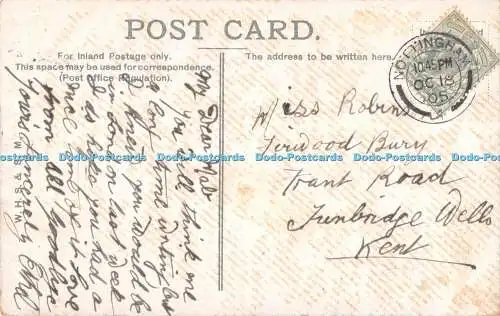 POST CARD.
For Inland Postage only.
This space may be used for correspondence.
(Post Office Regulation).
The address to be written here.
NOTTINGHAM
10.45 PM
OC 18
05
W.H.S.& S. M.
My Dear
you will think me
a long time writing but
I knew you would be
on last week
hope you had a
nice time love
from all
Yours sincerely
Miss Robins
Bury
Frant Road
Tunbridge Wells
Kent
Dodo-Postcards Dodo-Postcards Dodo-Postcards Dodo-Postcards Dodo-Postcards